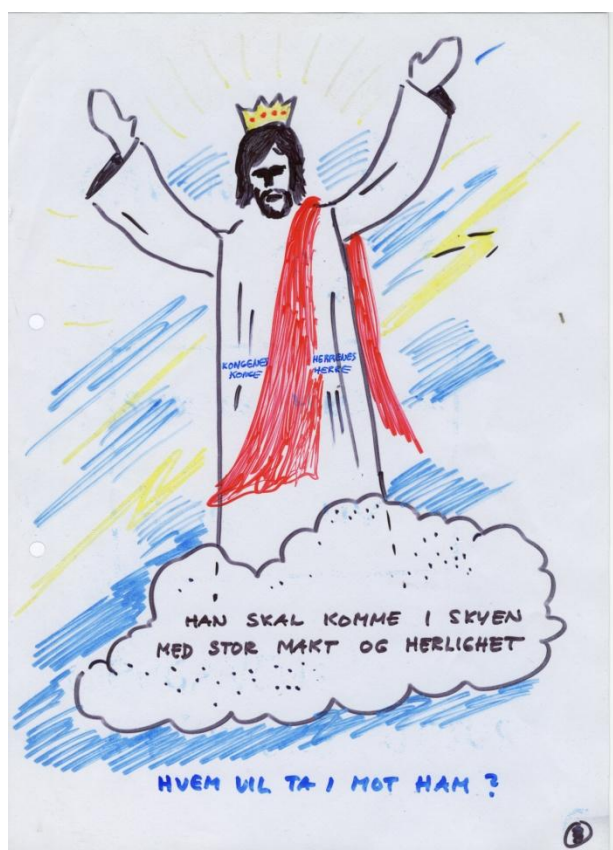 KONGENES
KONGE
HERRENES
HERRE
HAN SKAL KOMME I SKYEN
MED STOR MAKT OG HERLIGHET
HVEM VIL TA I MOT HAM?